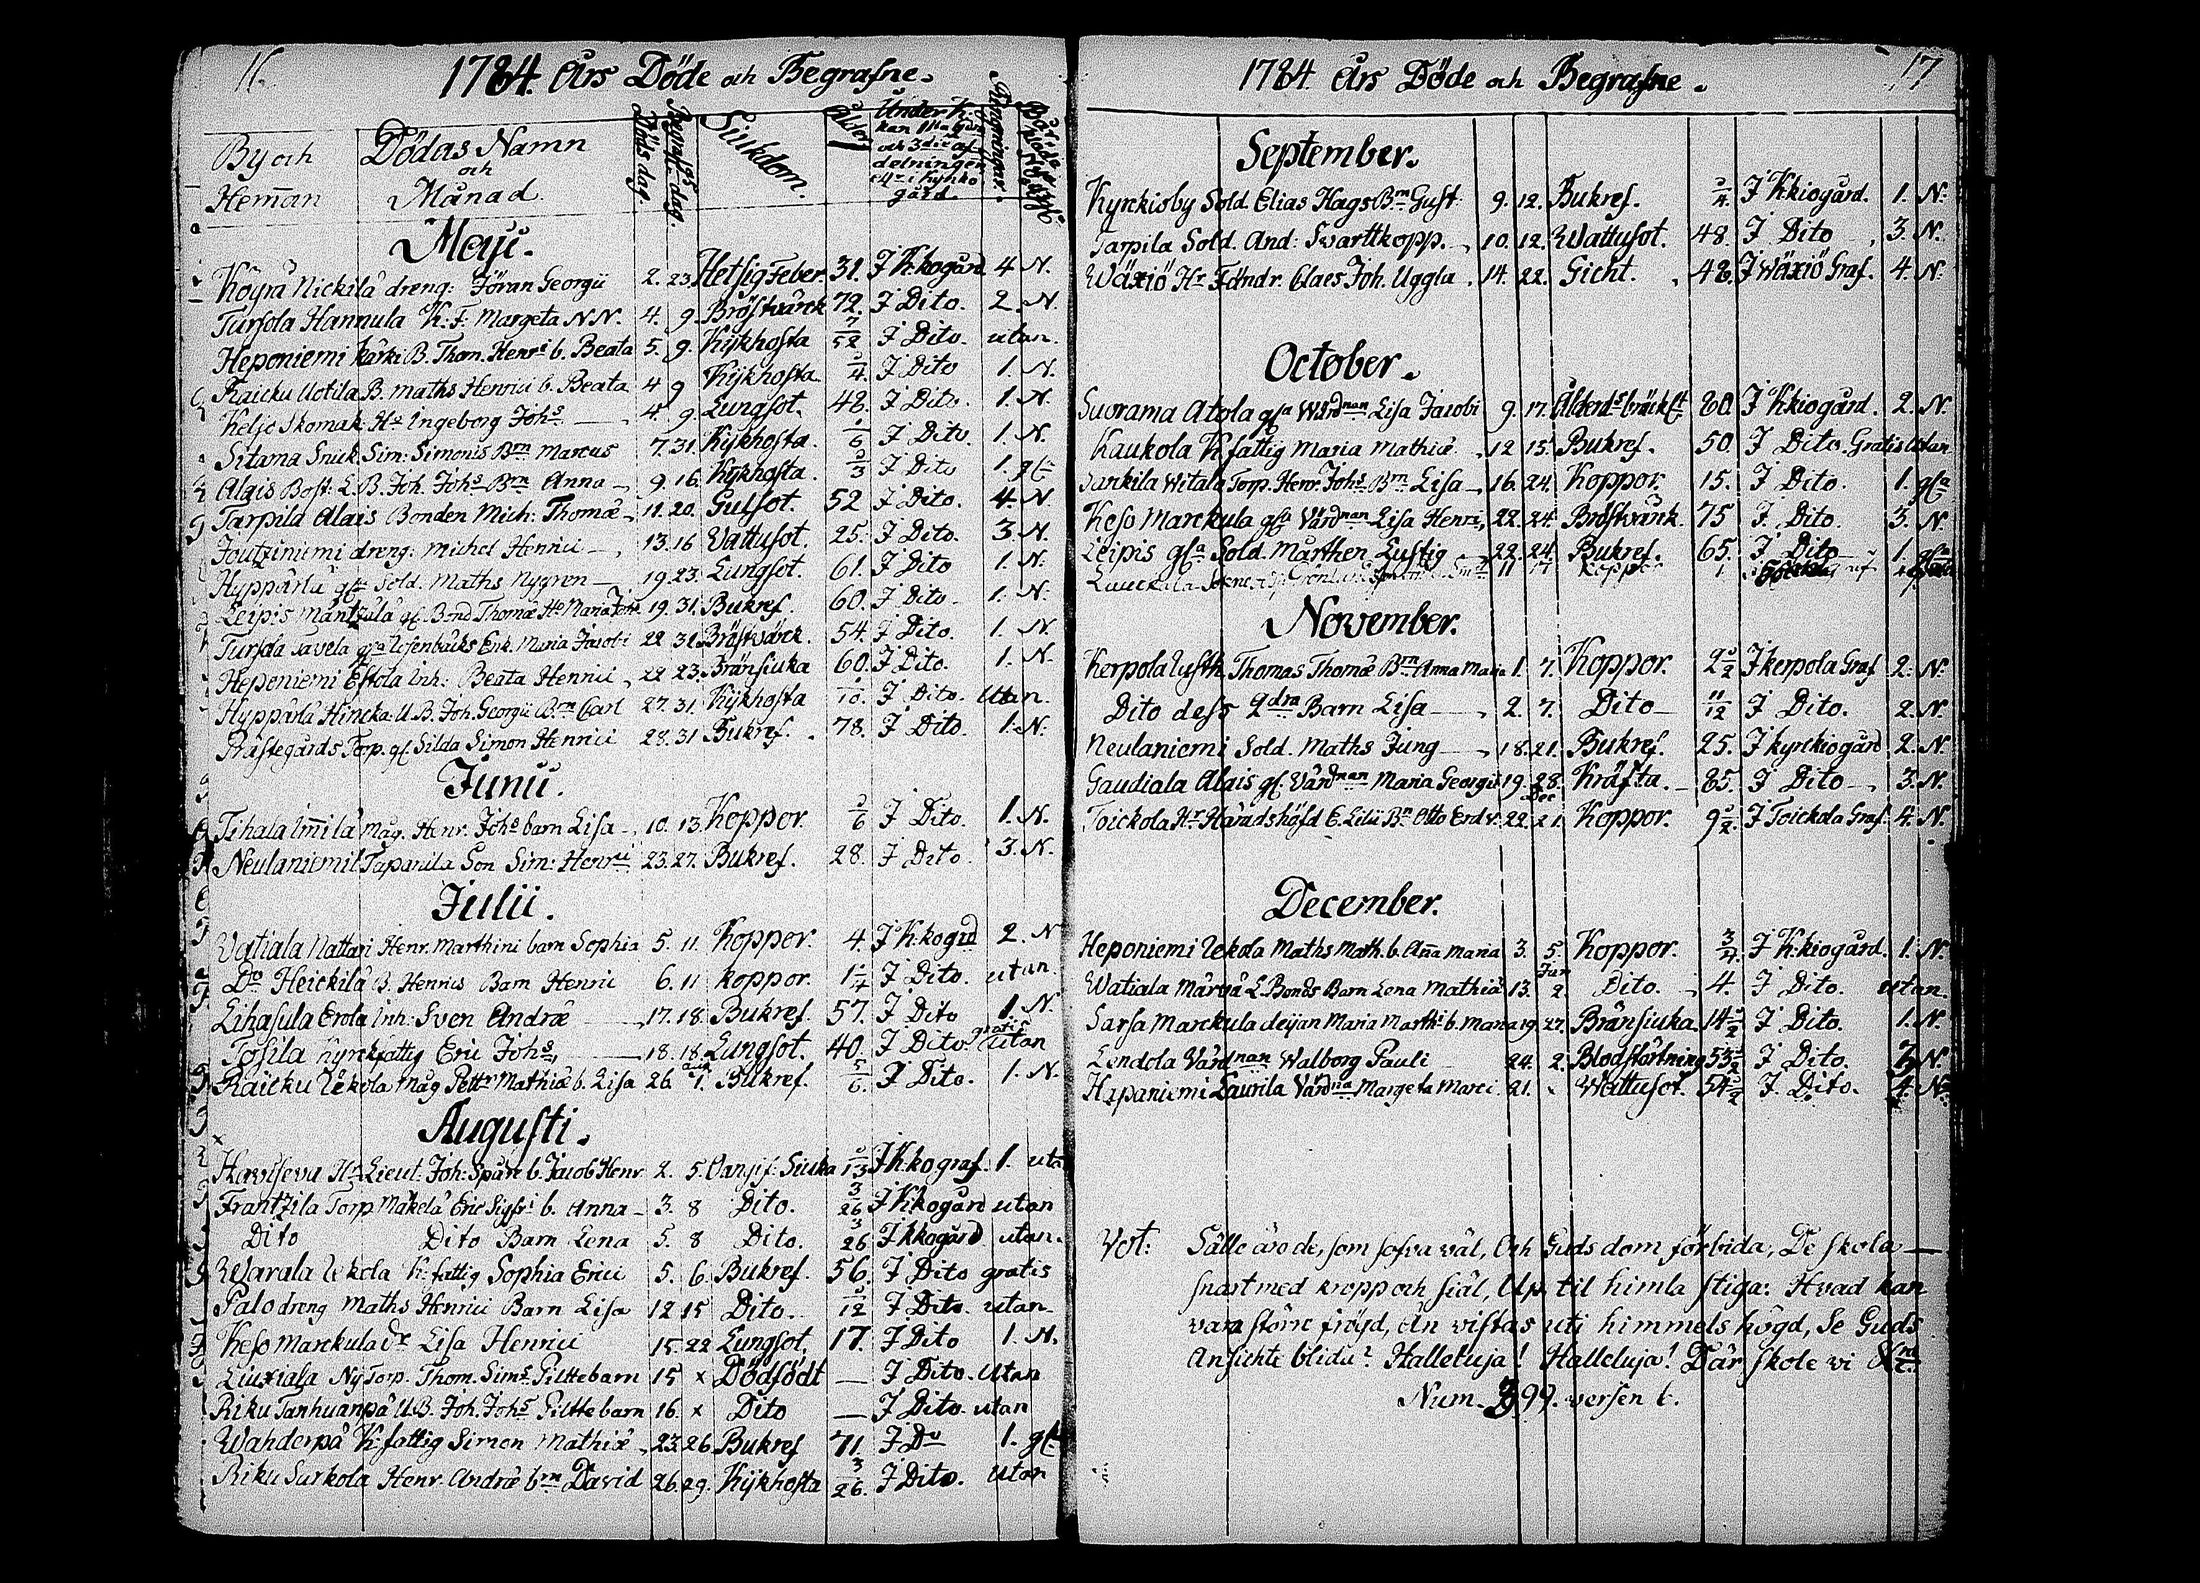 16.
1784. Års Döde och Begrafne.
By och Heman
Dödas Namn och Månad.
Döds dag.
Begrafn:gs dag.
Siukdom.
Ålder
Ringningar.
Maji.
Köyrä Nickilä dreng: Jöran Georgii 2. 23. Hetsig Feber. 31. J K:kogård 4 N.
Tursola Hannula K: F: Margeta N N. 4. 9. Bröstvärck 72. J Dito. 2. N.
Heponiemi Kärki B. Thom. Henr: b. Beata 5. 9. Kijkhosta 7/52 J Dito. utan.
Raicku Uotila B. Maths Henrici b. Beata 4 9 Kijkhosta. 3/4. J Dito 1. N.
Keljo Skomak: H:u Ingeborg Joh:s 4. 9. Lungsot. 48. J Dito. 1. N.
Sitama Snuk. Sim: Simonis B:rn Marcus 7. 31. Kijkhosta. J Dito. 1. N.
Alais Bost: L. B. Joh. Joh:s B:rn Anna 9. 16. Kijkhosta. J Dito 1. gl:
Tarpila Alais Bonden Mich: Thomæ 11. 20. Gulsot. 52 J Dito. 4. N
Joutziniemi dreng: Michel Henrici 13. 16 Vattusot. 25. J Dito. 3 N.
Hyppärlä gl: Sold. Maths Nygren 19. 23. Lungsot. 61. J Dito 1. N.
Leipis Mäntzälä gl. Bond Thomæ H:u Maria Joh: 19. 31. Bukref. 60. J Dito. 1. N.
Tursola Tavela Enk. Maria Jacobi 22 31. Bröstvärck. 54. J Dito. 1. N.
Heponiemi Eskola Inh: Beata Henrici 22 23. Bränsiuka 60. J Dito. 1. N.
Hyppärlä Hincka U. B. Joh. Georgii B:rn Carl 27. 31. Kijkhosta J Dito. Utan
Prästegårds Torp. gl. Silda Simon Henrici 28. 31 Bukref. 78. J Dito 1. N.
Junii.
Tihala Imilä Måg. Henr. Joh:s barn Lisa 10. 13. Koppor. J Dito 1. N.
Neulaniemi Tapanila Son Sim: Henri 23. 27. Bukref. 28. J Dito. 3. N.
Julii.
Vatiala Nattari Henr. Marthini barn Sophia 5. 11. Koppor. 4. J K:kogrd 2. N
D:o Heickilä B. Henrics Barn Henric 6. 11 koppor. J Dito. utan
Lihasula Erola Inh: Sven Andræ 17. 18. Bukref. 57. J Dito 1. N.
Tofsila Kyrkfattig Eric Joh:s 18. 18. Lungsot. 40. J Dito. gratis utan
Raicku Uckola Måg Pett: Mathiæ b. Lisa 26. Aug. 1. Bukref. 5/6. J Dito. 1. N.
Augusti.
Havisevu H:r Lieut: Joh: Spåre b. Jacob Henr 2. 5. J K:kograf. 1. uta
Frantzila Torp Mäkelä Eric Sigfr: b. Anna 3. 8 Dito. 3/26 J K:kogård utan
Dito Dito Barn Lena 5. 8 Dito. 3/26 J K:kogård utan.
Warala Uckola K: fattig Sophia Erici 5. 6. Bukref. 56. J Dito gratis
Palo dreng Maths Henrici Barn Lisa 12 15 Dito. J Dito. utan
Keso Marckula Lisa Henrici 15. 22 Lungsot. 17. J Dito 1. N.
Liuxiala Ny Torp. Thom. Sim:s Piltebarn 15 x Dödfödt — J Dito. Utan
Riku Tanhuanpä U. B. Joh. Joh:s Piltebarn 16. x Dito — J Dito. utan
Wahderpä K: fattig Simon Mathiæ 23. 26. Bukref 71. J D:o 1. gl:
Riku Surkola Henr. Andræ b:rn David 26. 29. Kijkhosta 3/26. J Dito. Utan
17
1784. Års Döde och Begrafne.
September.
Kyrckioby Sold. Elias Hags B:rn Gust: 9. 12. Bukref. J K:kiogård. 1. N.
Tarpila Sold. And: Svarttkopp. 10. 12. Wattusot. 48. J Dito 3. N.
Wäxiö H:r Fändr. Claes Joh. Uggla 14. 22. Gicht. 48. J Wäxiö Graf. 4. N.
October.
Suorama Atola gl:a Wärd:nan Lisa Jacobi 9. 17. 80. J K:kiogård. 2. N.
Kaukola K: fattig Maria Mathiæ 12 15. Bukref. 50. J Dito. Gratis Utan
Sankila Witala Torp. Henr. Joh:s B:rn Lisa 16. 24. Koppor. 15. J Dito. 1. gl:a
Keso Marckula gl:a Värd:nan Lisa Henri 22. 24. Bröstvärck. 75 J Dito. 3. N.
Leipis gl:a Sold. Mårthen Lustig 22. 24. Bukref. 65. J Dito 1. gl:a
November.
Kerpola Thomas Thomæ B:rn Anna Maria 1. 7. Koppor. J Kerpola Graf 2. N.
Dito dess 2:dra Barn Lisa 2. 7. Dito 11/12 J Dito. 2. N.
Neulaniemi Sold. Maths Jung 18. 21. Bukref. 25. J kyrckiogård 2. N.
Gaudiala Alais gl: Värd:nan Maria Georgii 19. 28. Kräfta. 85. J Dito 3. N.
Toickola H:r Häradshöfd E. Lilii B:n Otto Erdv: 22. Dec 21. Koppor. J Toickola Graf. 4. N.
December.
Heponiemi Uckola Maths Math. b. Aña Maria 3. 5. Koppor. 3/4. J K:kiogård. 1. N.
Watiala Märvä L. Bonds Barn Lena Mathiæ 13. Jan 2. Dito. 4. J Dito. utan
Sarsa Marckula deijan Maria Marth: b. Maria 19. 27. Bränsiuka J Dito. 1. N.
Lendola Värd:nan Walborg Pauli 24. 2. Blodstörtning J Dito. N.
Hepaniemi Laurila Värd:na Margeta Marci 21. Wattusot. J. Dito. 4. N.
Vot: Sälle äro de, som sofva väl, Och Guds dom förbida, De skola
snart med kropp och siäl, Up til himla stiga: Hvad kan
vara större fröyd, Än vistas uti himmels högd, Se Guds
Ansichte blida? Halleluja! Halleluja! Där skole vi
Num. 399. versen 6.